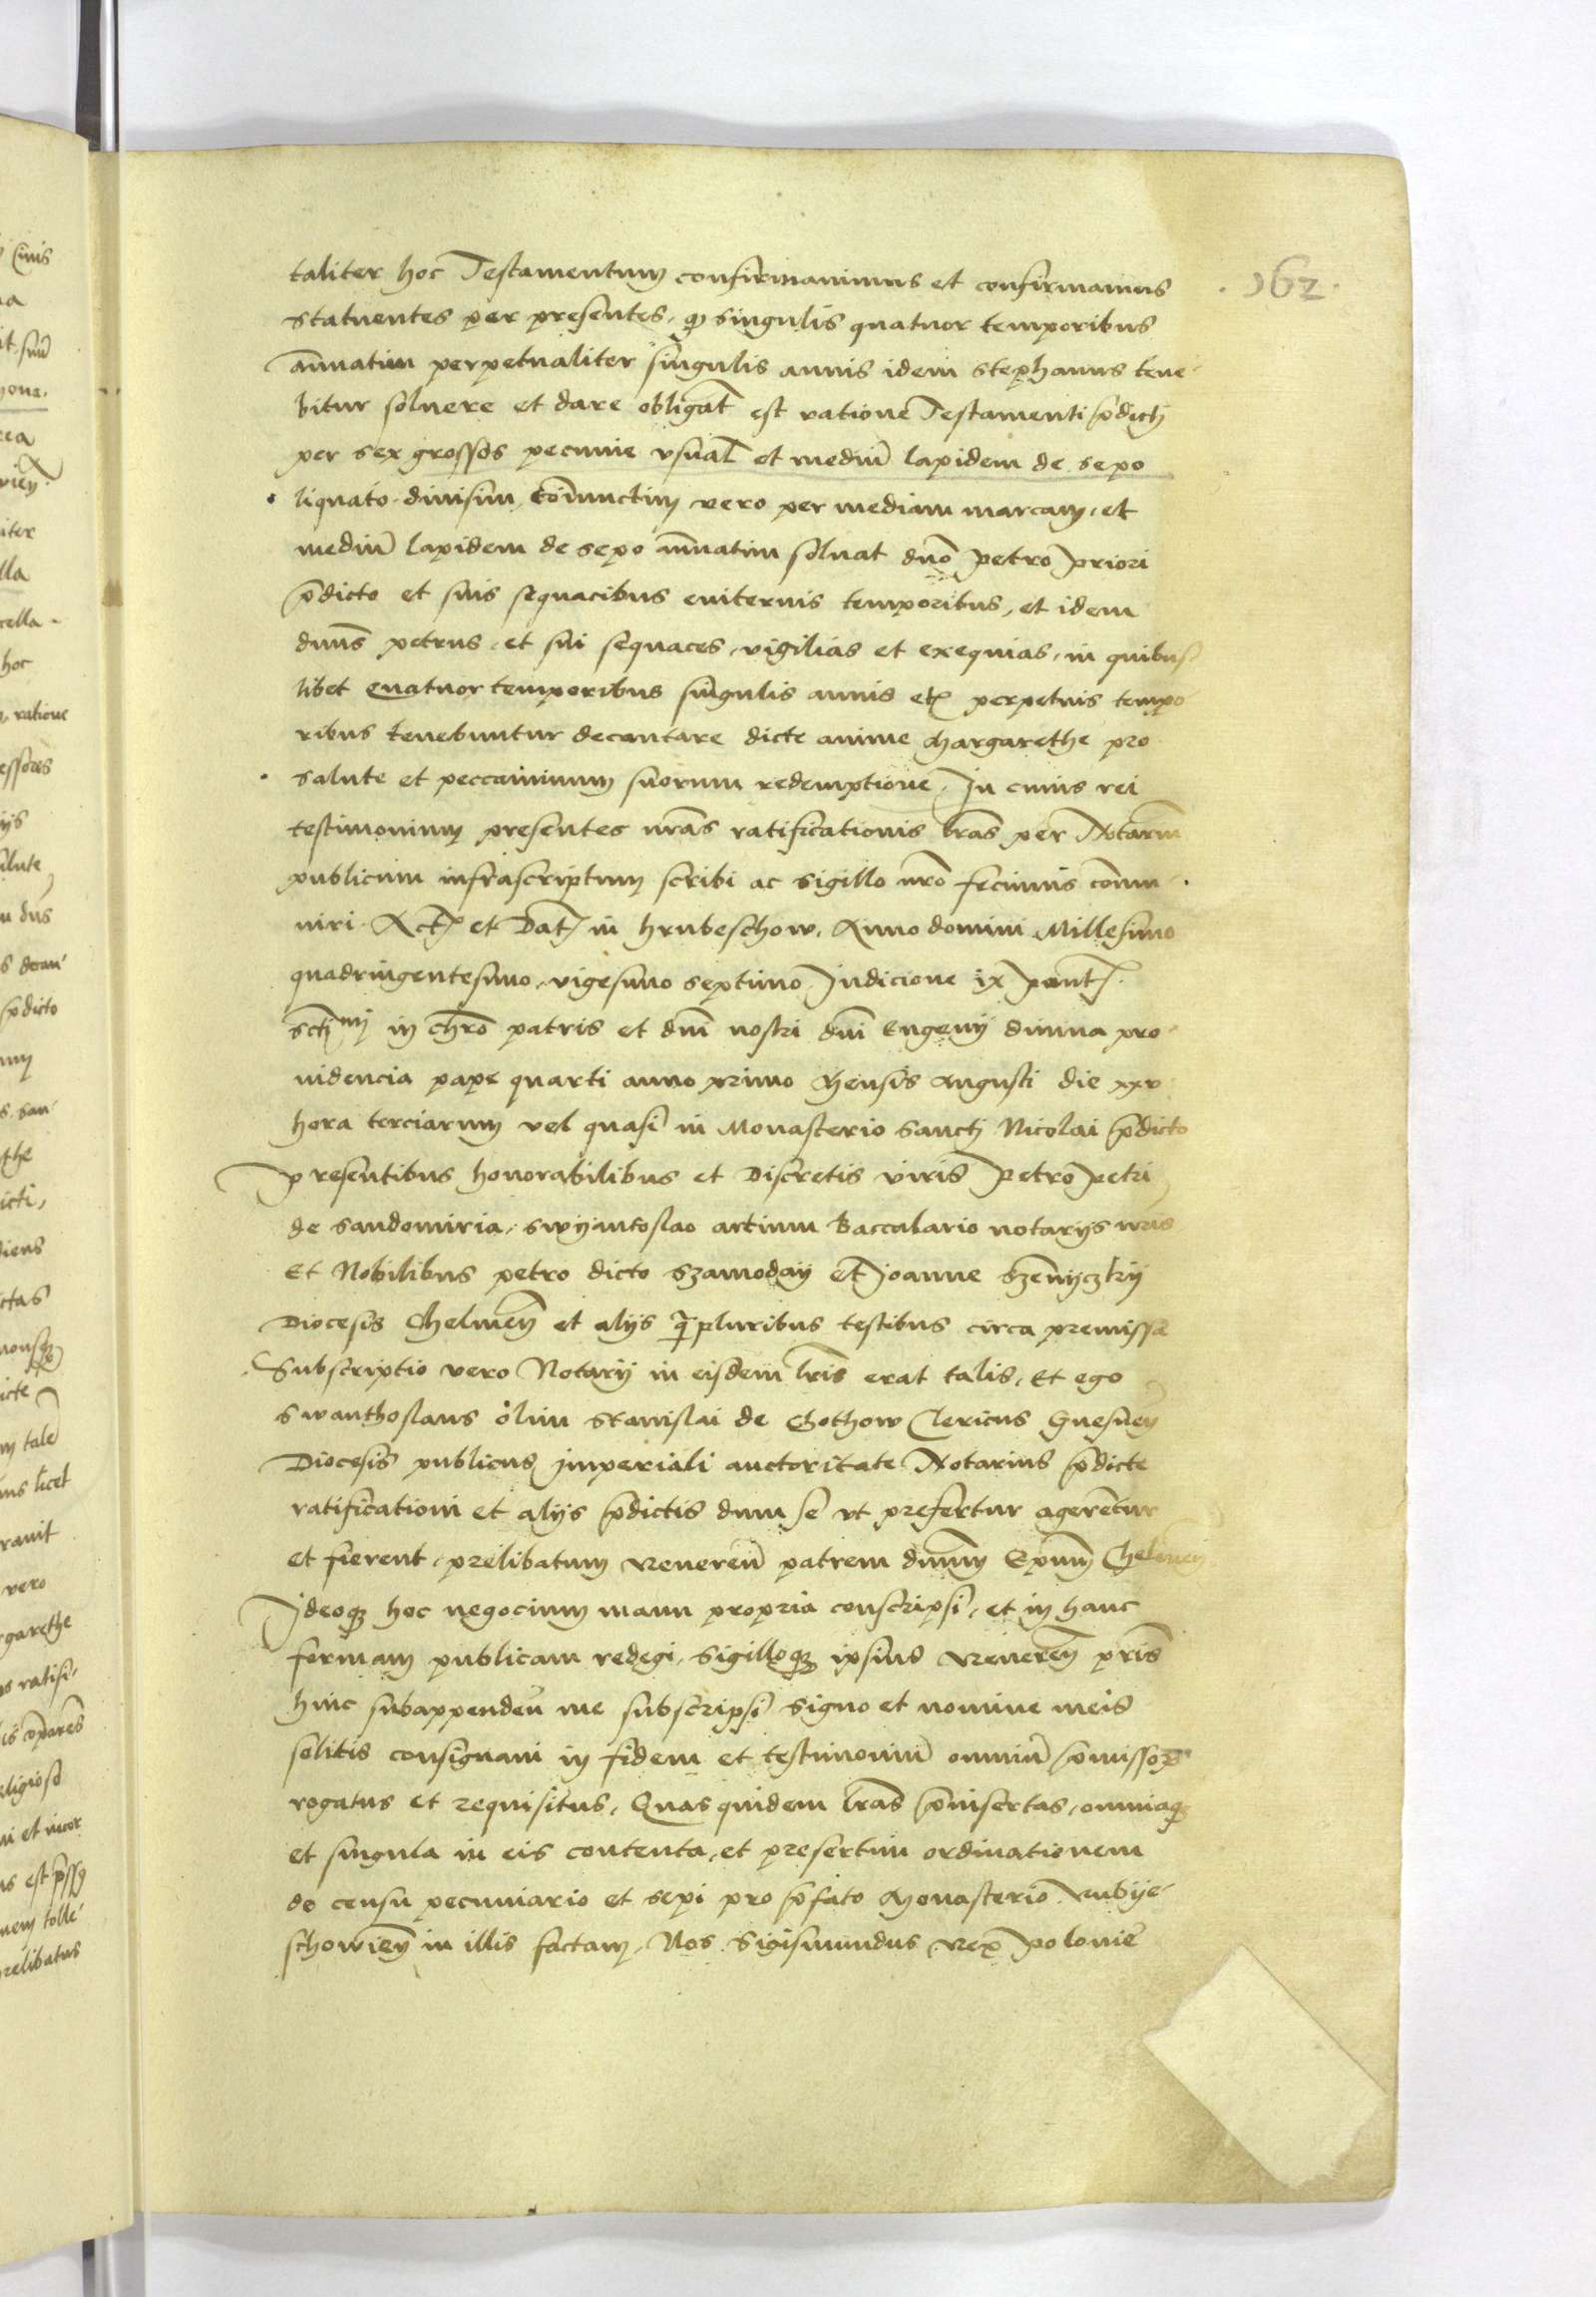 .162.
taliter hoc Testamentum confirmauimus et confirmamus
statuentes per presentes, q̃ singulis quatuor temporibus
añuatim perpetualiter singulis annis idem Stephanus tene-
bitur soluere et dare obligat̃ est ratione Testamenti p̃dicti
per sex grossos pecunie vsual̃ et mediũ lapidem de sepo
liquato diuisim, coñiunctim vero per mediam marcam, et
mediũ lapidem de sepo ãnuatim soluat dñо petro priori
p̃dicto et suis sequacibus euiternis temporibus, et idem
dñus petrus, et sui sequaces, vigilias et exequias, in quibus-
libet quatuor temporibus singulis annis et perpetuis tempo
ribus tenebuntur decantare dicte anime Margarethe pro
salute et peccaminum suorum redemptione, In cuius rei
testimonium presentes nr̃as ratificationis lr̃as per Notariũ
publicum infrascriptum scribi ac sigillo nr̃o fecimus com̃u-
niri. Act et Dat in hrubeschow, Anno domini Millesimo
quadringentesimo, vigesimo septimo Indicione ix pont
sctjmi in chr̃o patris et dñi nostri dñi Eugenij diuina pro-
uidencia pape quarti anno primo Mensis Augusti die xxv
hora terciarum vel quasi in Monasterio sancti Nicolai p̃dicto
presentibus honorabilibus et Discretis viris petro petri
de Sandomiria, Swyantoslao artium baccalario notarijs nr̃is
Et Nobilibus petro dicto Szamoday et Joanne Szenyczky
Diocesis Chelmeñ et alijs q̃pluribus testibus circa premissa
Subscriptio vero Notarij in eisdem lr̃is erat talis, Et ego
Swanthoslaus olim Stanislai de Gothow Clericus Gnesneñ
Diocesis publicus Imperiali auctoritate Notarius p̃dicte
ratificationi et alijs p̃dictis dum se vt prefertur agerentur
et fierent, prelibatum Reuereñ patrem dñum Ep̃um Chelmeñ
Ideoq̃ hoc negocium manu propria conscripsi, et in hanc
formam publicam redegi, sigilloq̃ ipsius Reuereñ pr̃is
huic subappendeñ me subscripsi signo et nomine meis
solitis consignaui in fidem et testimoniũ omniũ p̃missorꝝ
rogatus et requisitus, Quas quidem lr̃as p̃insertas, omniaq̃
et singula in eis contenta, et presertim ordinationem
de censu pecuniario et sepi pro p̃fato Monasterio Rubye-
schowieñ in illis factam, Nos Sigismundus Rex polonie